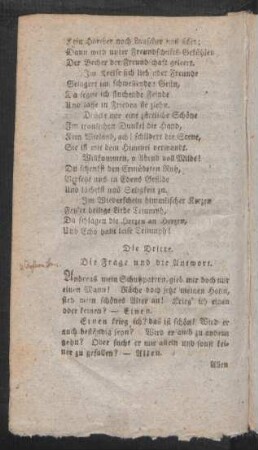 Kein Horcher noch Lauscher
Dann wird unter Freundschafts-Gefühlen
Der Becher der Freundschaft geleert.
Im Kreise sich lieb
im schwellenden Grün,
Da segne ich fluchende Feinde
Und lasse in Frieden sie ziehn.
Drückt mir eine zärtliche Schöne
Im traulichen Dunkel die Hand,
Kein Wieland, ach! schildert die Scene,
Sie ist mit dem Himmel verwandt.
Willkommen, o Abend voll Milde!
Du schenkst dem Ermüdeten Ruh,
Versetzst uns in Edens Gefilde
Und lächelst uns Seligkeit zu.
Im Wiederschein himmlischer Kerzen
Feyert heilige Liebe Triumph,
Da schlagen die Herzen an Herzen,
Und Echo hallt leise Triumph!
Die Dritte.
Die Frage und die Antwort.
Andreas mein Schutzpatron, gieb mir doch nur
einen Mann! Räche doch jetzt meinen Hohn,
sieh mein schönes Alter an! Krieg' ich einen
oder keinen? — Einen.
Einen krieg ich? das ist schön! Wird er
auch beständig seyn? Wird er auch zu andern
gehn? Oder sucht er nur allein und sonst keiner
zu gefallen? — Allen.
Allen